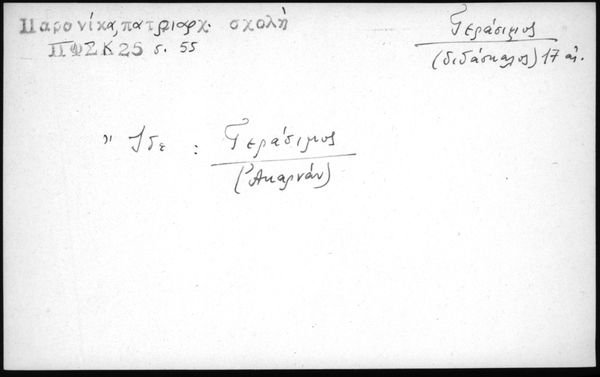 Παρονίκα, πατριαρχ. σχολή
ΠΦΣΚ25 σ. 55
Γεράσιμος
(διδάσκαλος) 17 αἰ.
Ἴδε : Γεράσιμος
(Ἀκαρνάν)